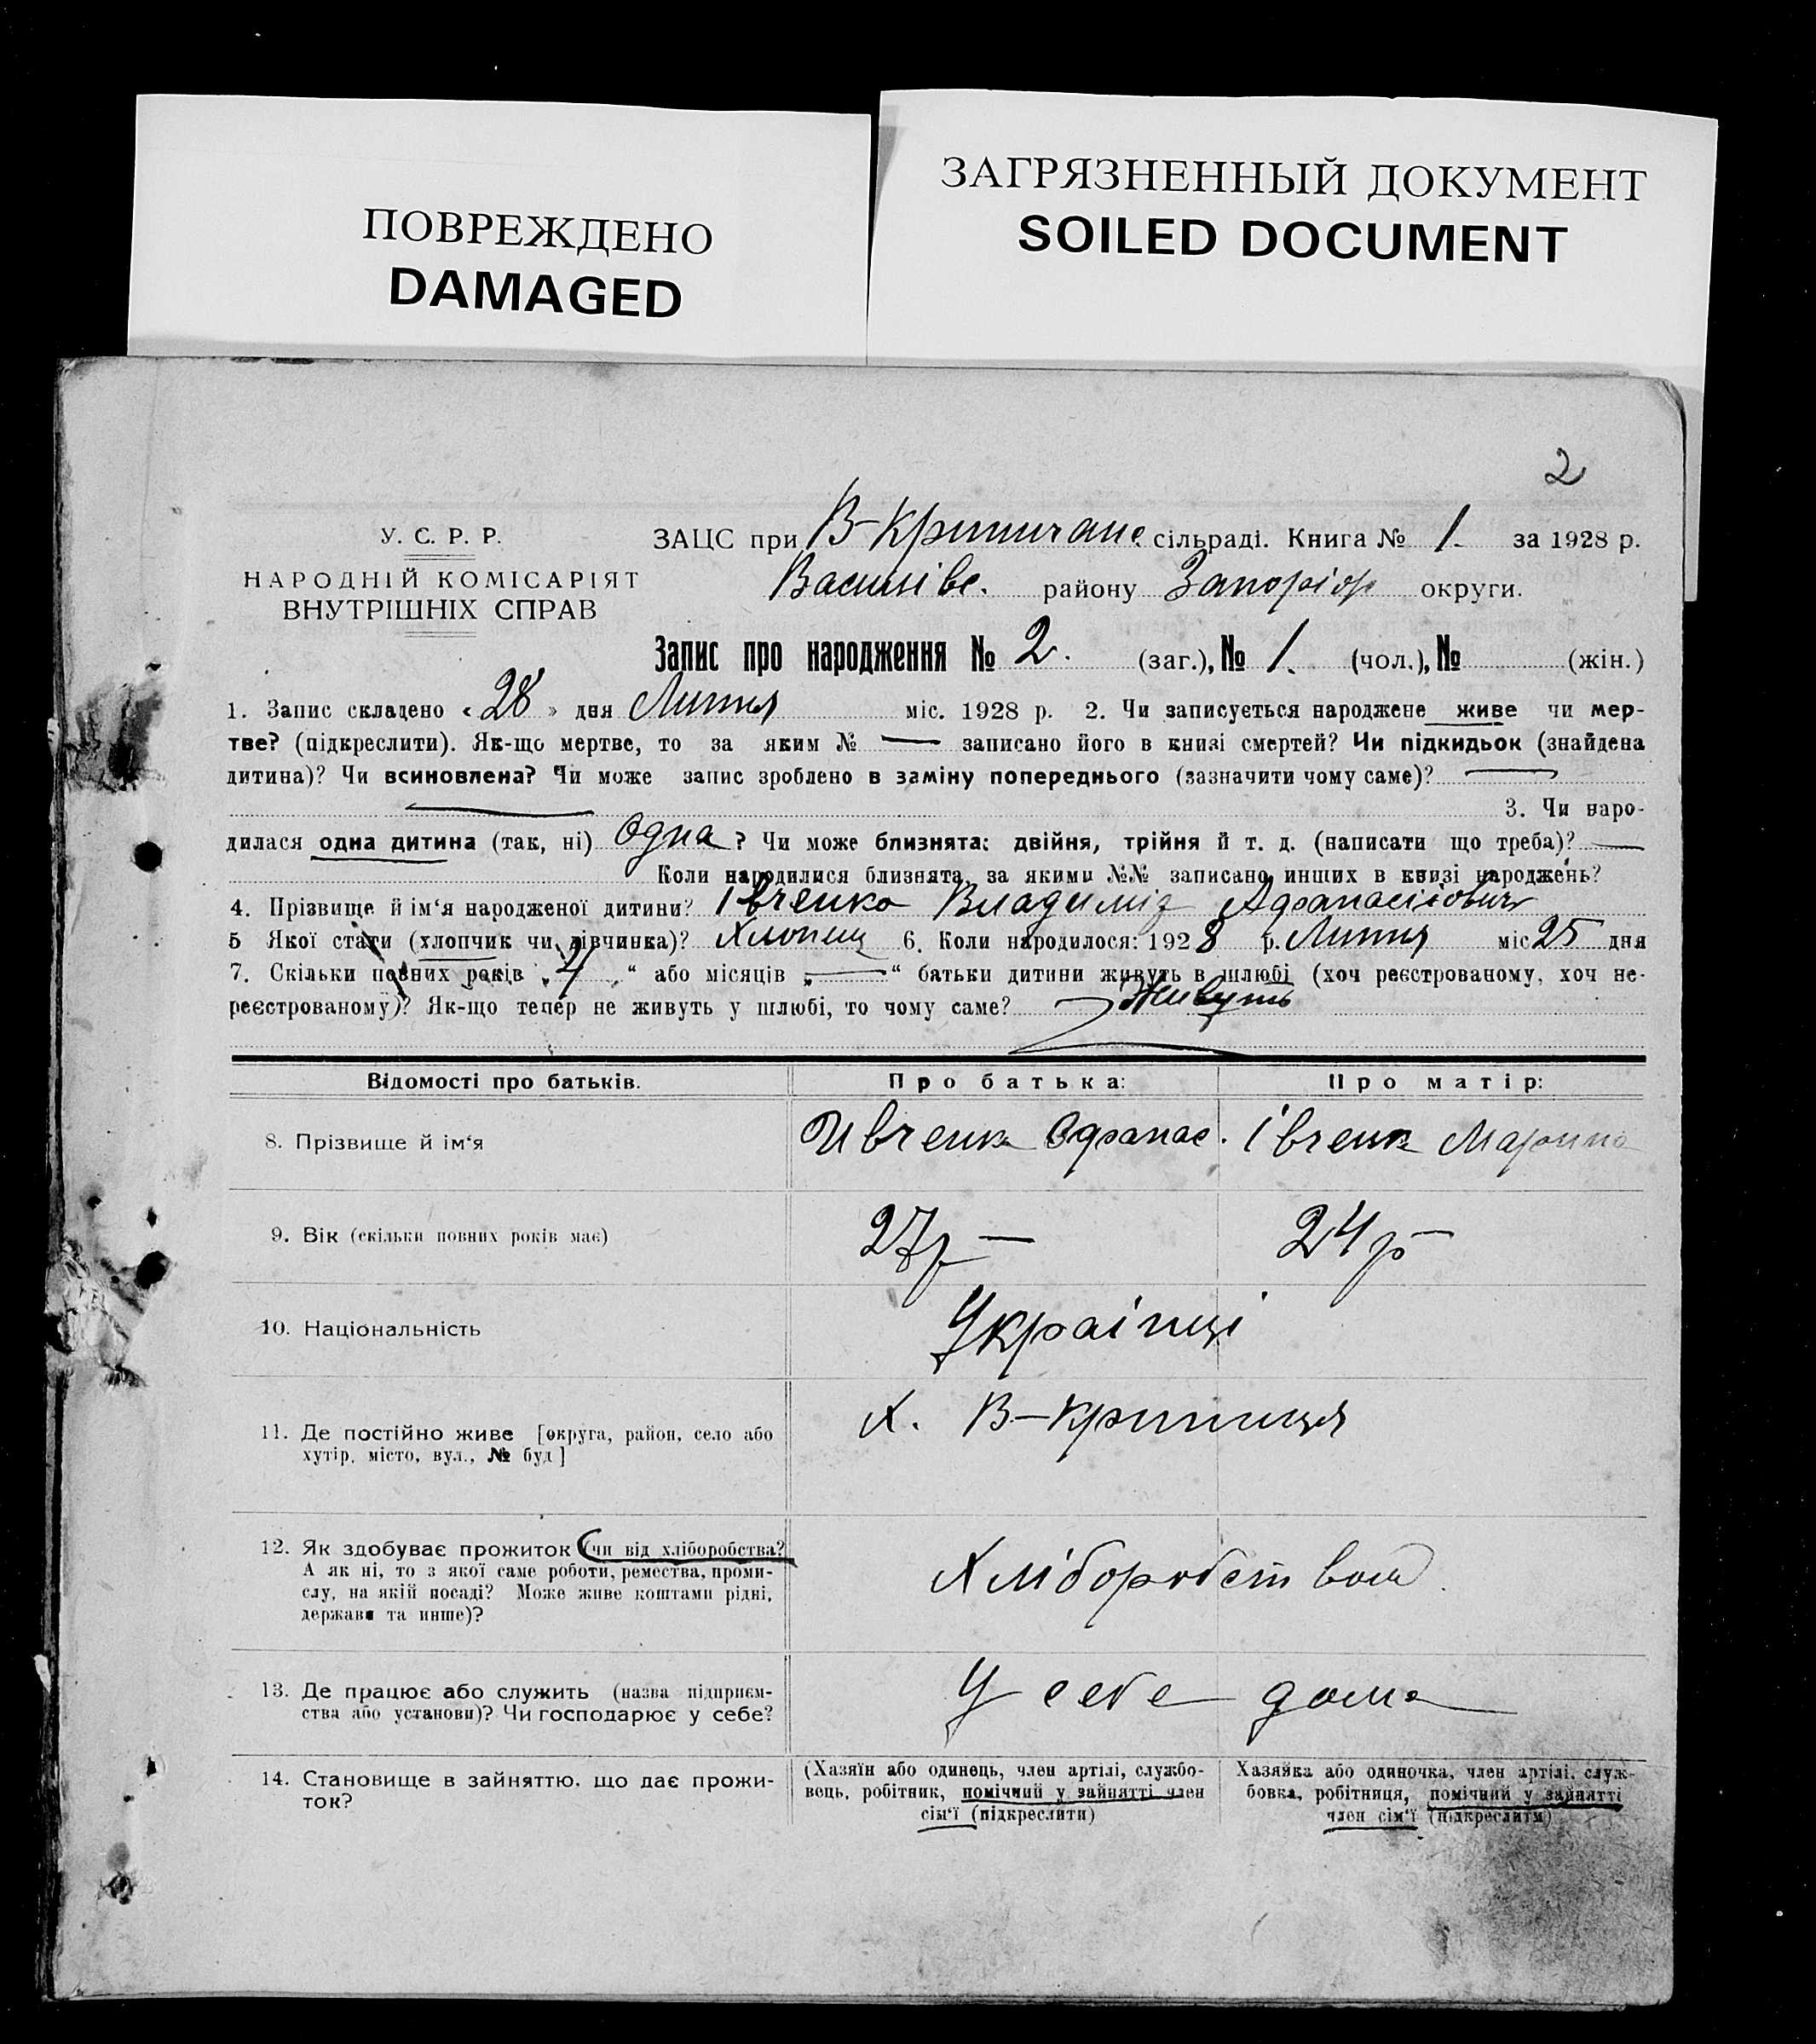 ПОВРЕЖДЕНО
DAMAGED
ЗАГРЯЗНЕННЫЙ ДОКУМЕНТ
SOILED DOCUMENT
2
У. С. Р. Р.
НАРОДНІЙ КОМІСАРІЯТ
ВНУТРІШНІХ СПРАВ
ЗАЦС при В-Криничанс. сільраді. Книга № 1. за 1928 р.
Василівс. району Запоріж округи.
Запис про народження № 2. (заг.), № 1. (чол.), № (жін.)
1. Запис складено « 28 » дня Липня міс. 1928 р. 2. Чи записується народжене живе чи мер-
тве? (підкреслити). Як-що мертве, то за яким № — записано його в книзі смертей? Чи підкидьок (знайдена
дитина)? Чи всиновлена? Чи може запис зроблено в заміну попереднього (зазначити чому саме)? —
— 3. Чи наро-
дилася одна дитина (так, ні) Одна ? Чи може близнята: двійня, трійня й т. д. (написати що треба)? —
Коли народилися близнята, за якими №№ записано инших в книзі народжень?
4. Прізвище й ім‘я народженої дитини? Івченко Владимір Афанасійович
5 Якої стати (хлопчик чи дівчинка)? Хлопець 6. Коли народилося: 1928 р. Липня міс 25 дня
7. Скільки повних років „ 4 “ або місяців „ — “ батьки дитини живуть в шлюбі (хоч реєстрованому, хоч не-
реєстрованому)? Як-що тепер не живуть у шлюбі, то чому саме? Живуть
Відомості про батьків. Про батька: Про матір:
8. Прізвище й ім‘я Ивченк Офанас. Івченк Марина
9. Вік (скільки повних років має) 27 р — 24 р —
10. Національність Українці
11. Де постійно живе [округа, район, село або
хутір, місто, вул., № буд] х. В-Криниця
12. Як здобуває прожиток (чи від хліборобства?
А як ні, то з якої саме роботи, ремества, проми-
слу, на якій посаді? Може живе коштами рідні,
держави та инше)? Хліборобством
13. Де працює або служить (назва підприєм-
ства або установи)? Чи господарює у себе? У себе дома
14. Становище в зайняттю, що дає прожи-
ток?
(Хазяїн або одинець, член артілі, службо-
вець, робітник, помічний у зайнятті член
сім‘ї (підкреслити)
Хазяйка або одиночка, член артілі, служ-
бовка, робітниця, помічний у зайнятті
член сім‘ї (підкреслити)